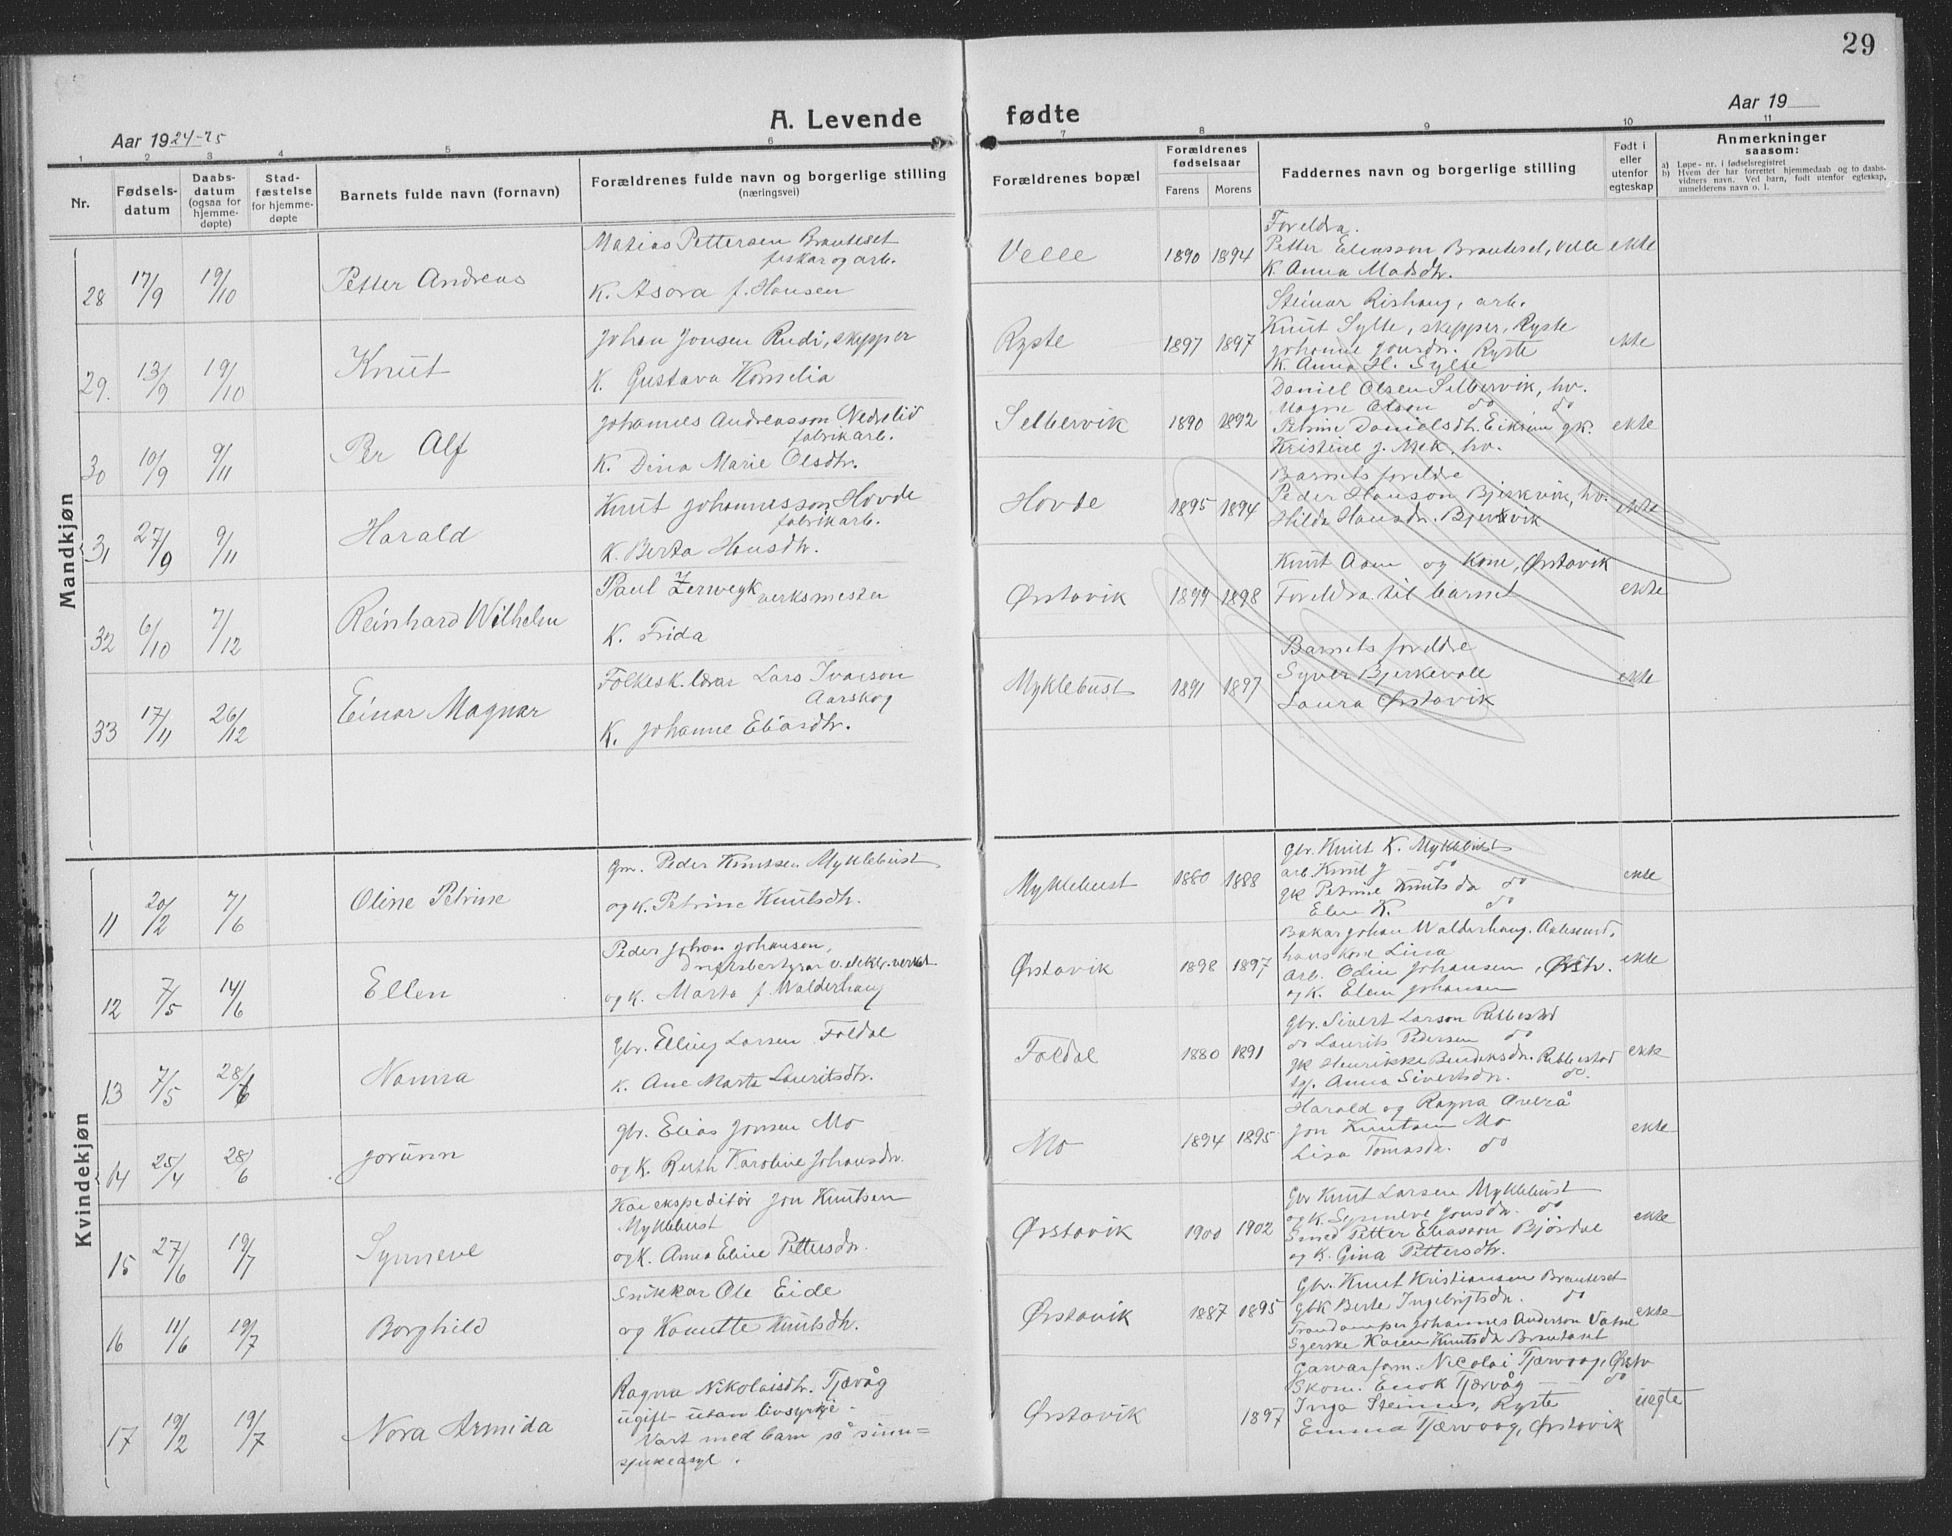 29
Aar 1924-25
A. Levende fødte
Aar 19
1 2 3 4 5 6 7 8 9 10 11
Nr.
Fødsels-datum
Daabs-datum (ogsaa for hjemme-døpte)
Stad-fæstelse for hjemme-døpte
Barnets fulde navn (fornavn)
Forældrenes fulde navn og borgerlige stilling (næringsvei)
Forældrenes bopæl
Forældrenes fødselsaar
Farens Morens
Faddernes navn og borgerlige stilling
Født i eller utenfor egteskap
Anmerkninger saasom:
a) Løpe-nr. i fødselsregistret
b) Hvem der har forrettet hjemmedaab og to daabs-
vidners navn. Ved barn, født utenfor egteskap,
anmelderens navn o. l.
Mandkjøn
28 17/9 19/10 Petter Andreas
Matias Pettersen Brauteset
fiskar og arb.
K. Asora f. Hansen
Velle 1890 1894
Foreldra.
Petter Eliasson Brauteset, Velle
K. Anna Madsdtr.
ekte
29. 13/9 19/10 Knut
Johan Jonsen Rudi, skepper
K. Gustava Kornelia
Ryste 1897 1897
Steinar Rishaug, arb.
Knut Sylte, skepper, Ryste
Johanne Jonsdtr. Ryste
K. Anna H. Sylte
ekte
30 10/9 9/11 Per Alf
Johannes Andreasson Nedrelid
fabrikarb.
K. Dina Marie Olsdtr.
Setbervik 1890 1892
Daniel Olsen Setbervik, hv.
Magne Olsen do do
Petrine Danielsdtr. Eikrem gk.
Kristine J. Mek, hv.
ekte
31 27/9 9/11 Harald
Knut Johannesson Hovde
fabrikarb.
K. Berta Hansdtr.
Hovde 1895 1894
Barnets foreldre
Peder Hanson Bjerkvik, hv.
Hilda Hansdtr. Bjerkvik
ekte
32 6/10 7/12 Reinhard Wilhelm
Paul Zerwegk verksmester
K. Frida
Ørstavik 1899 1898
Knut Aam og Kone, Ørstavik
Foreldra til barnet
ekte
33 17/11 26/12 Einar Magnar
Folkesk.lærar Lars Ivarson
Aarskog
K. Johanne Eliasdtr.
Myklebust 1891 1897
Barnets foreldre
Syver Bjerkevoll
Laura Ørstavik
ekte
Kvindekjøn
11 20/2 7/6 Oline Petrine
Gm. Peder Knutsen Myklebust
og K. Petrine Knutsdtr.
Myklebust 1880 1888
Gbr. Knut K. Myklebust
arb. Knut J — do
gk Petrine Knutsdtr do
Elen K. do
ekte
12 7/5 14/6 Ellen
Peder Johan Johansen,
driftsbestyrar v. elektr. verket
og K. Marta f. Walderhaug
Ørstavik 1898 1897
Bakar Johan Walderhaug. Aalesund,
hans kone Lina
Arb. Odin Johansen, Ørstv.
og K. Elen Johansen
ekte
13 7/5 28/6 Nanna
Gbr. Elling Larsen Foldal
K. Ane Marta Lauritsdtr.
Foldal 1880 1891
Gbr. Sivert Larson Rebbestad
do Laurits Pedersen do
gk Henrikke Bendiksdtr. Rebbestad
tj. Anna Sivertsdtr. do.
ekte
14 25/4 28/6 Jorunn
Gbr. Elias Jonsen Mo
og K. Ruth Karoline Johansdtr.
Mo 1894 1895
Harald og Ragna Avelrå
Jon Knutsen Mo
Lisa Tomasdtr. do
ekte
15 27/6 19/7 Synneve
Kaiekspeditør Jon Knutsen
Myklebust
og K. Anna Eline Pettersdtr.
Ørstavik 1900 1902
Gbr Knut Larsen Myklebust
og K. Synneve Jonsdtr. do
Smed Petter Eliasson Bjørdal
og K. Gina Pettersdtr.
ekte
16 11/6 19/7 Borghild
Snikkar Ole Eide
og Kanutte Knutsdtr.
Ørstavik 1887 1895
Gbr. Knut Kristiansen Brauteset
Gbk Berte Ingebrigtsdtr. do
Trandamper Johannes Anderson Vatne
Syerske Karen Knutsdtr Brauteset
ekte
17 19/2 19/7 Nora Armida
Ragna Nikolaisdtr. Tjervåg
ugift – utan livsyrkje.
Vart med barn så sinn=
sjukeasyl.
Ørstavik 1897
Garvarform. Nicolai Tjærvoog, Ørstv
Skom. Enok Tjærvåg — do
Inga Steines, Ryste
Emma Tjærvoog, Ørstavik
uegte